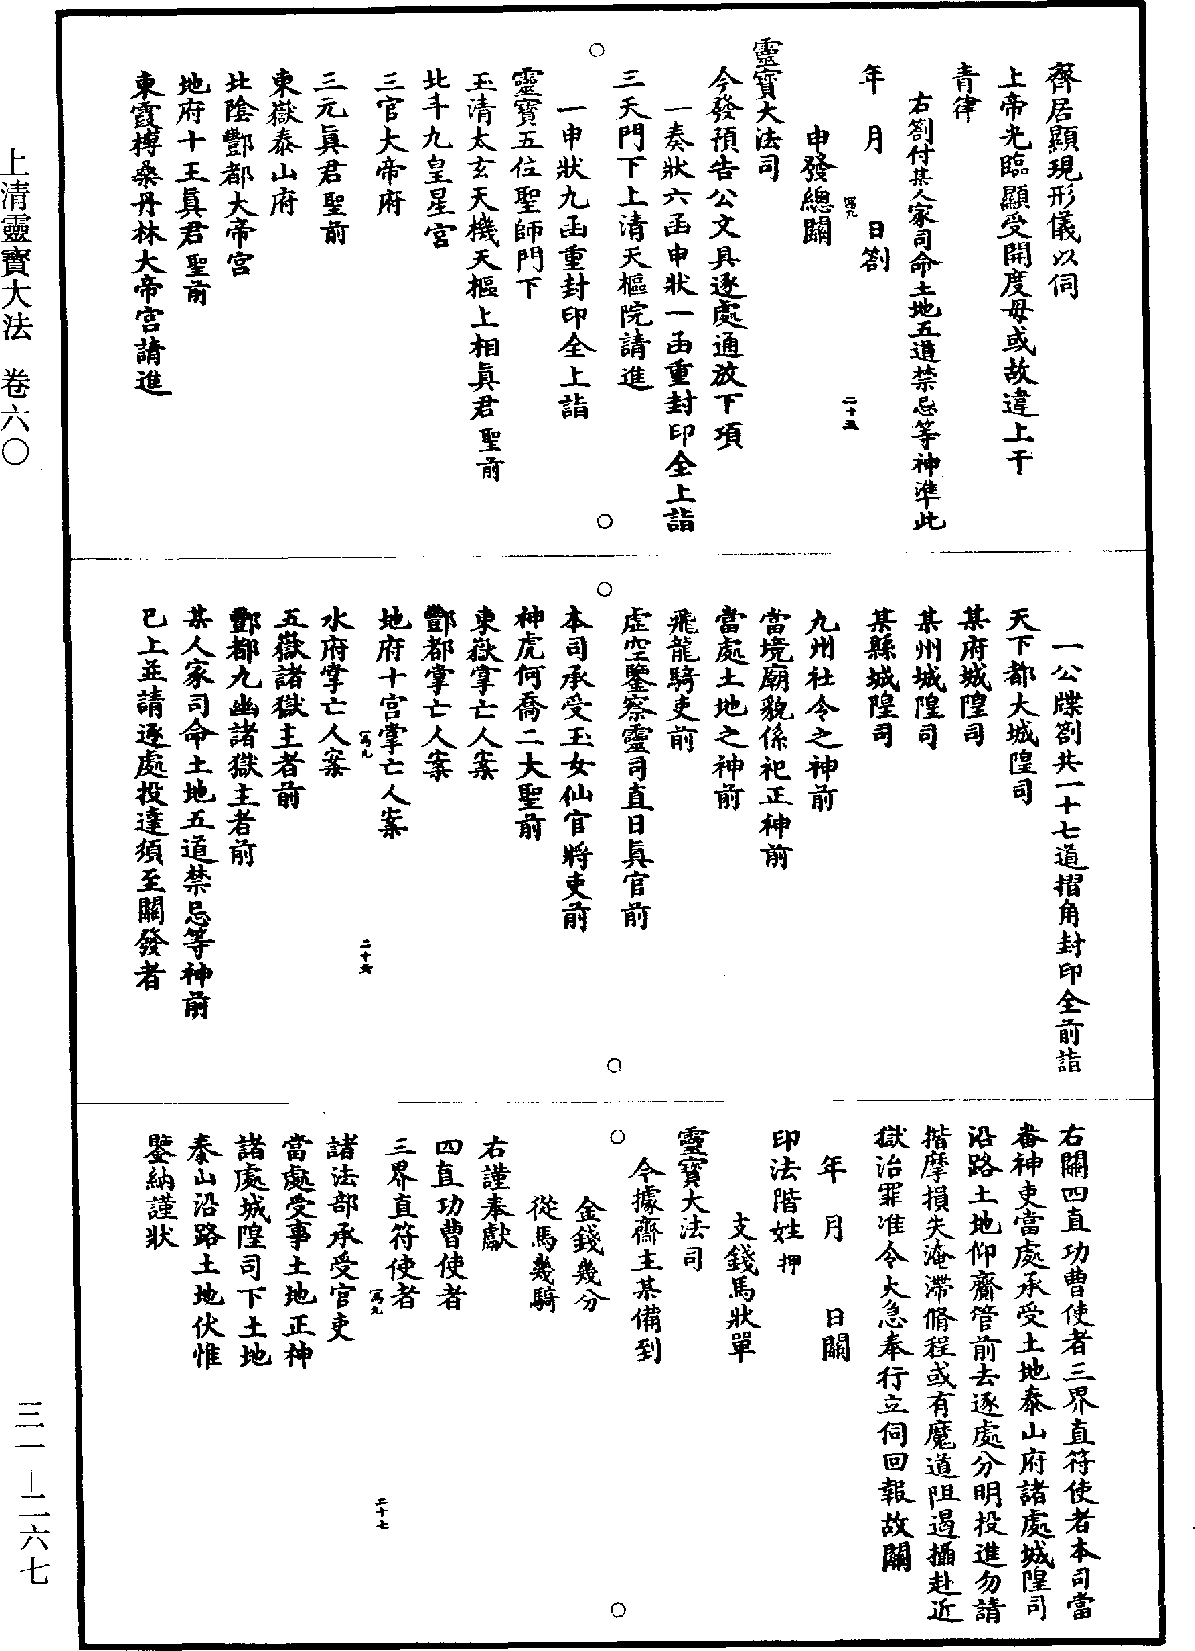 上清靈寶大法　卷六〇
齊居顯現形儀以伺
上帝光臨顯受開度毋或故違上干
青律
右劄付某人家司命土地五道禁忌等神準此
年　月　日劄
寫九
二十五
申發總關
靈寶大法司
今發預告公文具逐處通放下項
一奏狀六函申狀一函重封印全上詣
三天門下上清天樞院請進
一申狀九函重封印全上詣
靈寶五位聖師門下
玉清太玄天機天樞上相眞君聖前
北斗九皇星宮
三官大帝府
三元眞君聖前
東嶽泰山府
北陰酆都大帝宮
地府十王眞君聖前
東霞榑桑丹林大帝宮請進
一公牒劄共一十七道摺角封印全前詣
天下都大城隍司
某府城隍司
某州城隍司
某縣城隍司
九州社令之神前
當境廟貌係祀正神前
當處土地之神前
飛龍騎吏前
虛空鑒察靈司直日眞官前
本司承受玉女仙官將吏前
神虎何喬二大聖前
東嶽掌亡人案
酆都掌亡人案
地府十宮掌亡人案
寫九
二十六
水府掌亡人案
五嶽諸獄主者前
酆都九幽諸獄主者前
某人家司命土地五道禁忌等神前
已上並請逐處投達須至關發者
右關四直功曹使者三界直符使者本司當
畨神吏當處承受土地泰山府諸處城隍司
沿路土地仰齎管前去逐處分明投進勿請
揩摩損失淹滯脩程或有魔道阻遏攝赴近
獄治罪准令火急奉行立伺回報故關
年　月　日關
印法階姓押
支錢馬狀單
靈寶大法司
今據齋主某備到
金錢幾分
從馬幾騎
右謹奉獻
四直功曹使者
三界直符使者
寫九
二十七
諸法部承受官吏
當處受事土地正神
諸處城隍司下土地
泰山沿路土地伏惟
鑒納謹狀
三一－二六七